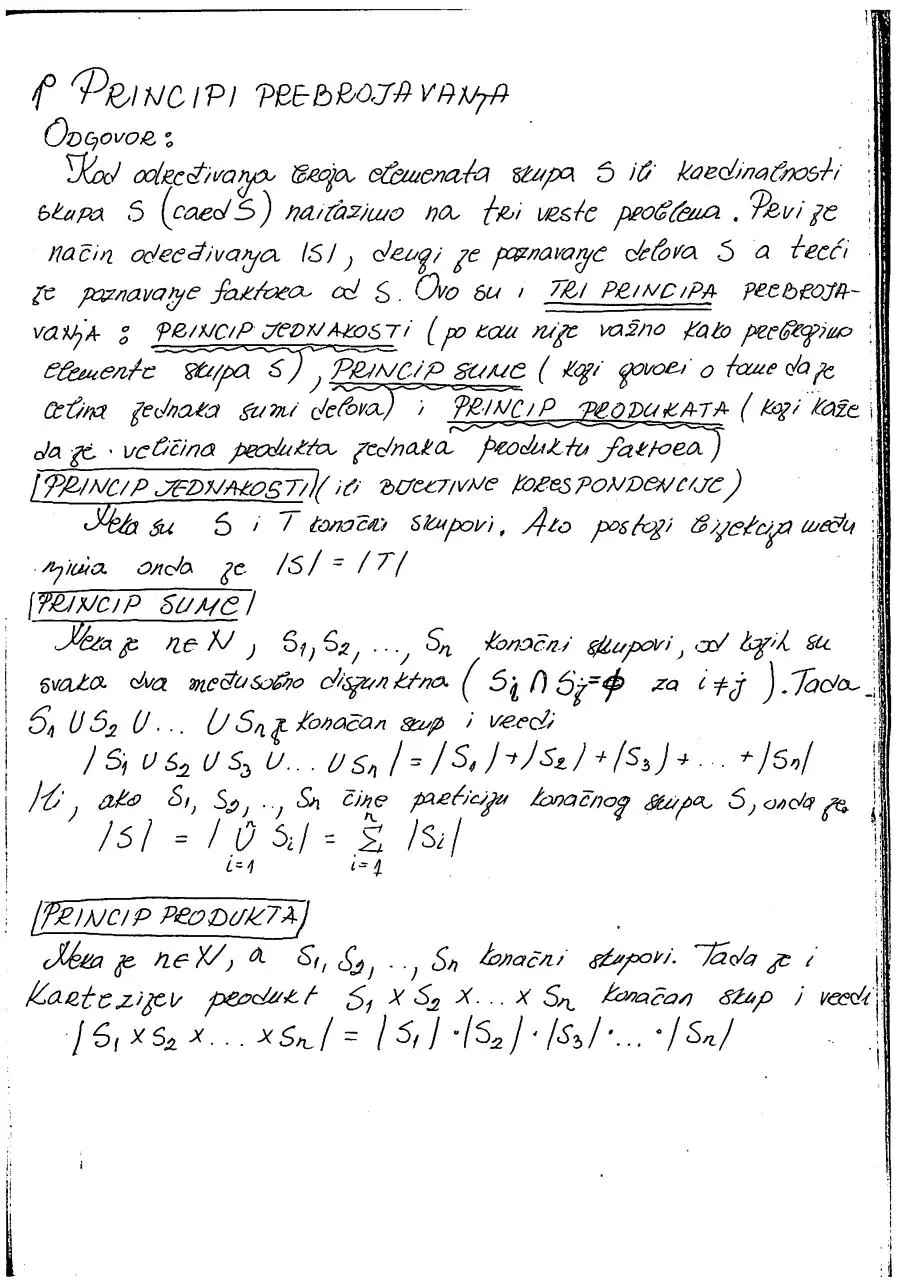 ↑ PRINCIPI PREBROJAVANJA
ODGOVOR:
Kod određivanja broja elemenata skupa S ili kardinalnosti
skupa S (card S) nailazimo na tri vrste problema. Prvi je
način određivanja |S|, drugi je poznavanje delova S a treći
je poznavanje faktora od S. Ovo su i TRI PRINCIPA PREBROJA-
VANJA: PRINCIP JEDNAKOSTI (po kom nije važno kako prebrojimo
elemente skupa S), PRINCIP SUME (koji govori o tome da je
celina jednaka sumi delova) i PRINCIP PRODUKATA (koji kaže
da je veličina produkta jednaka produktu faktora)
PRINCIP JEDNAKOSTI (ili BIJEKTIVNE KORESPONDENCIJE)
Neka su S i T konačni skupovi. Ako postoji bijekcija među
njima onda je |S| = |T|
PRINCIP SUME
Neka je n∈N, S₁, S₂, ..., Sn konačni skupovi, od kojih su
svaka dva međusobno disjunktna (Si ∩ Sj = ϕ za i ≠ j). Tada
S₁ ∪ S₂ ∪ ... ∪ Sn je konačan skup i vredi
|S₁ ∪ S₂ ∪ S₃ ∪ ... ∪ Sn| = |S₁| + |S₂| + |S₃| + ... + |Sn|
Ili, ako S₁, S₂, .., Sn čine particiju konačnog skupa S, onda je
|S| = |⋃ⁿᵢ₌₁ Si| = Σⁿᵢ₌₁ |Si|
PRINCIP PRODUKTA
Neka je n∈N, a S₁, S₂, .., Sn konačni skupovi. Tada je i
Kartezijev produkt S₁ × S₂ × ... × Sn konačan skup i vredi
|S₁ × S₂ × ... × Sn| = |S₁| · |S₂| · |S₃| · ... · |Sn|